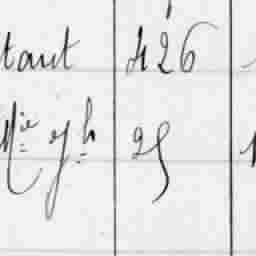 tant 426
Mie Jh 25